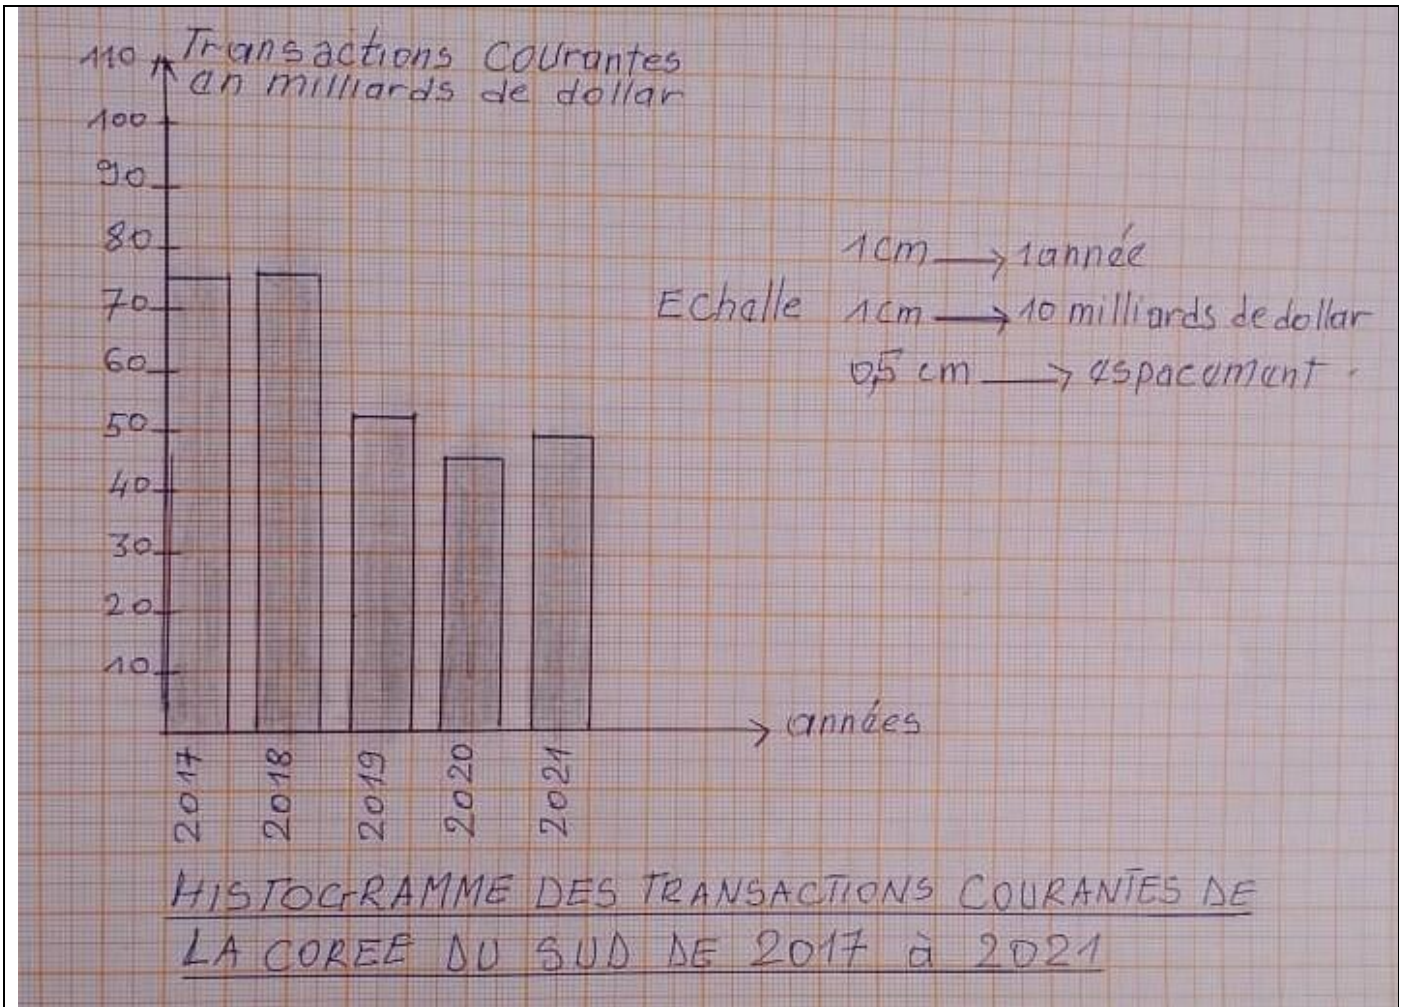 Transactions Courantes
en milliards de dollar
110
100
90
80
70
60
50
40
30
20
10
1cm → 1année
Echelle 1cm → 10 milliards de dollar
0,5 cm → espacement
années
2017
2018
2019
2020
2021
HISTOGRAMME DES TRANSACTIONS COURANTES DE
LA COREE DU SUD DE 2017 à 2021